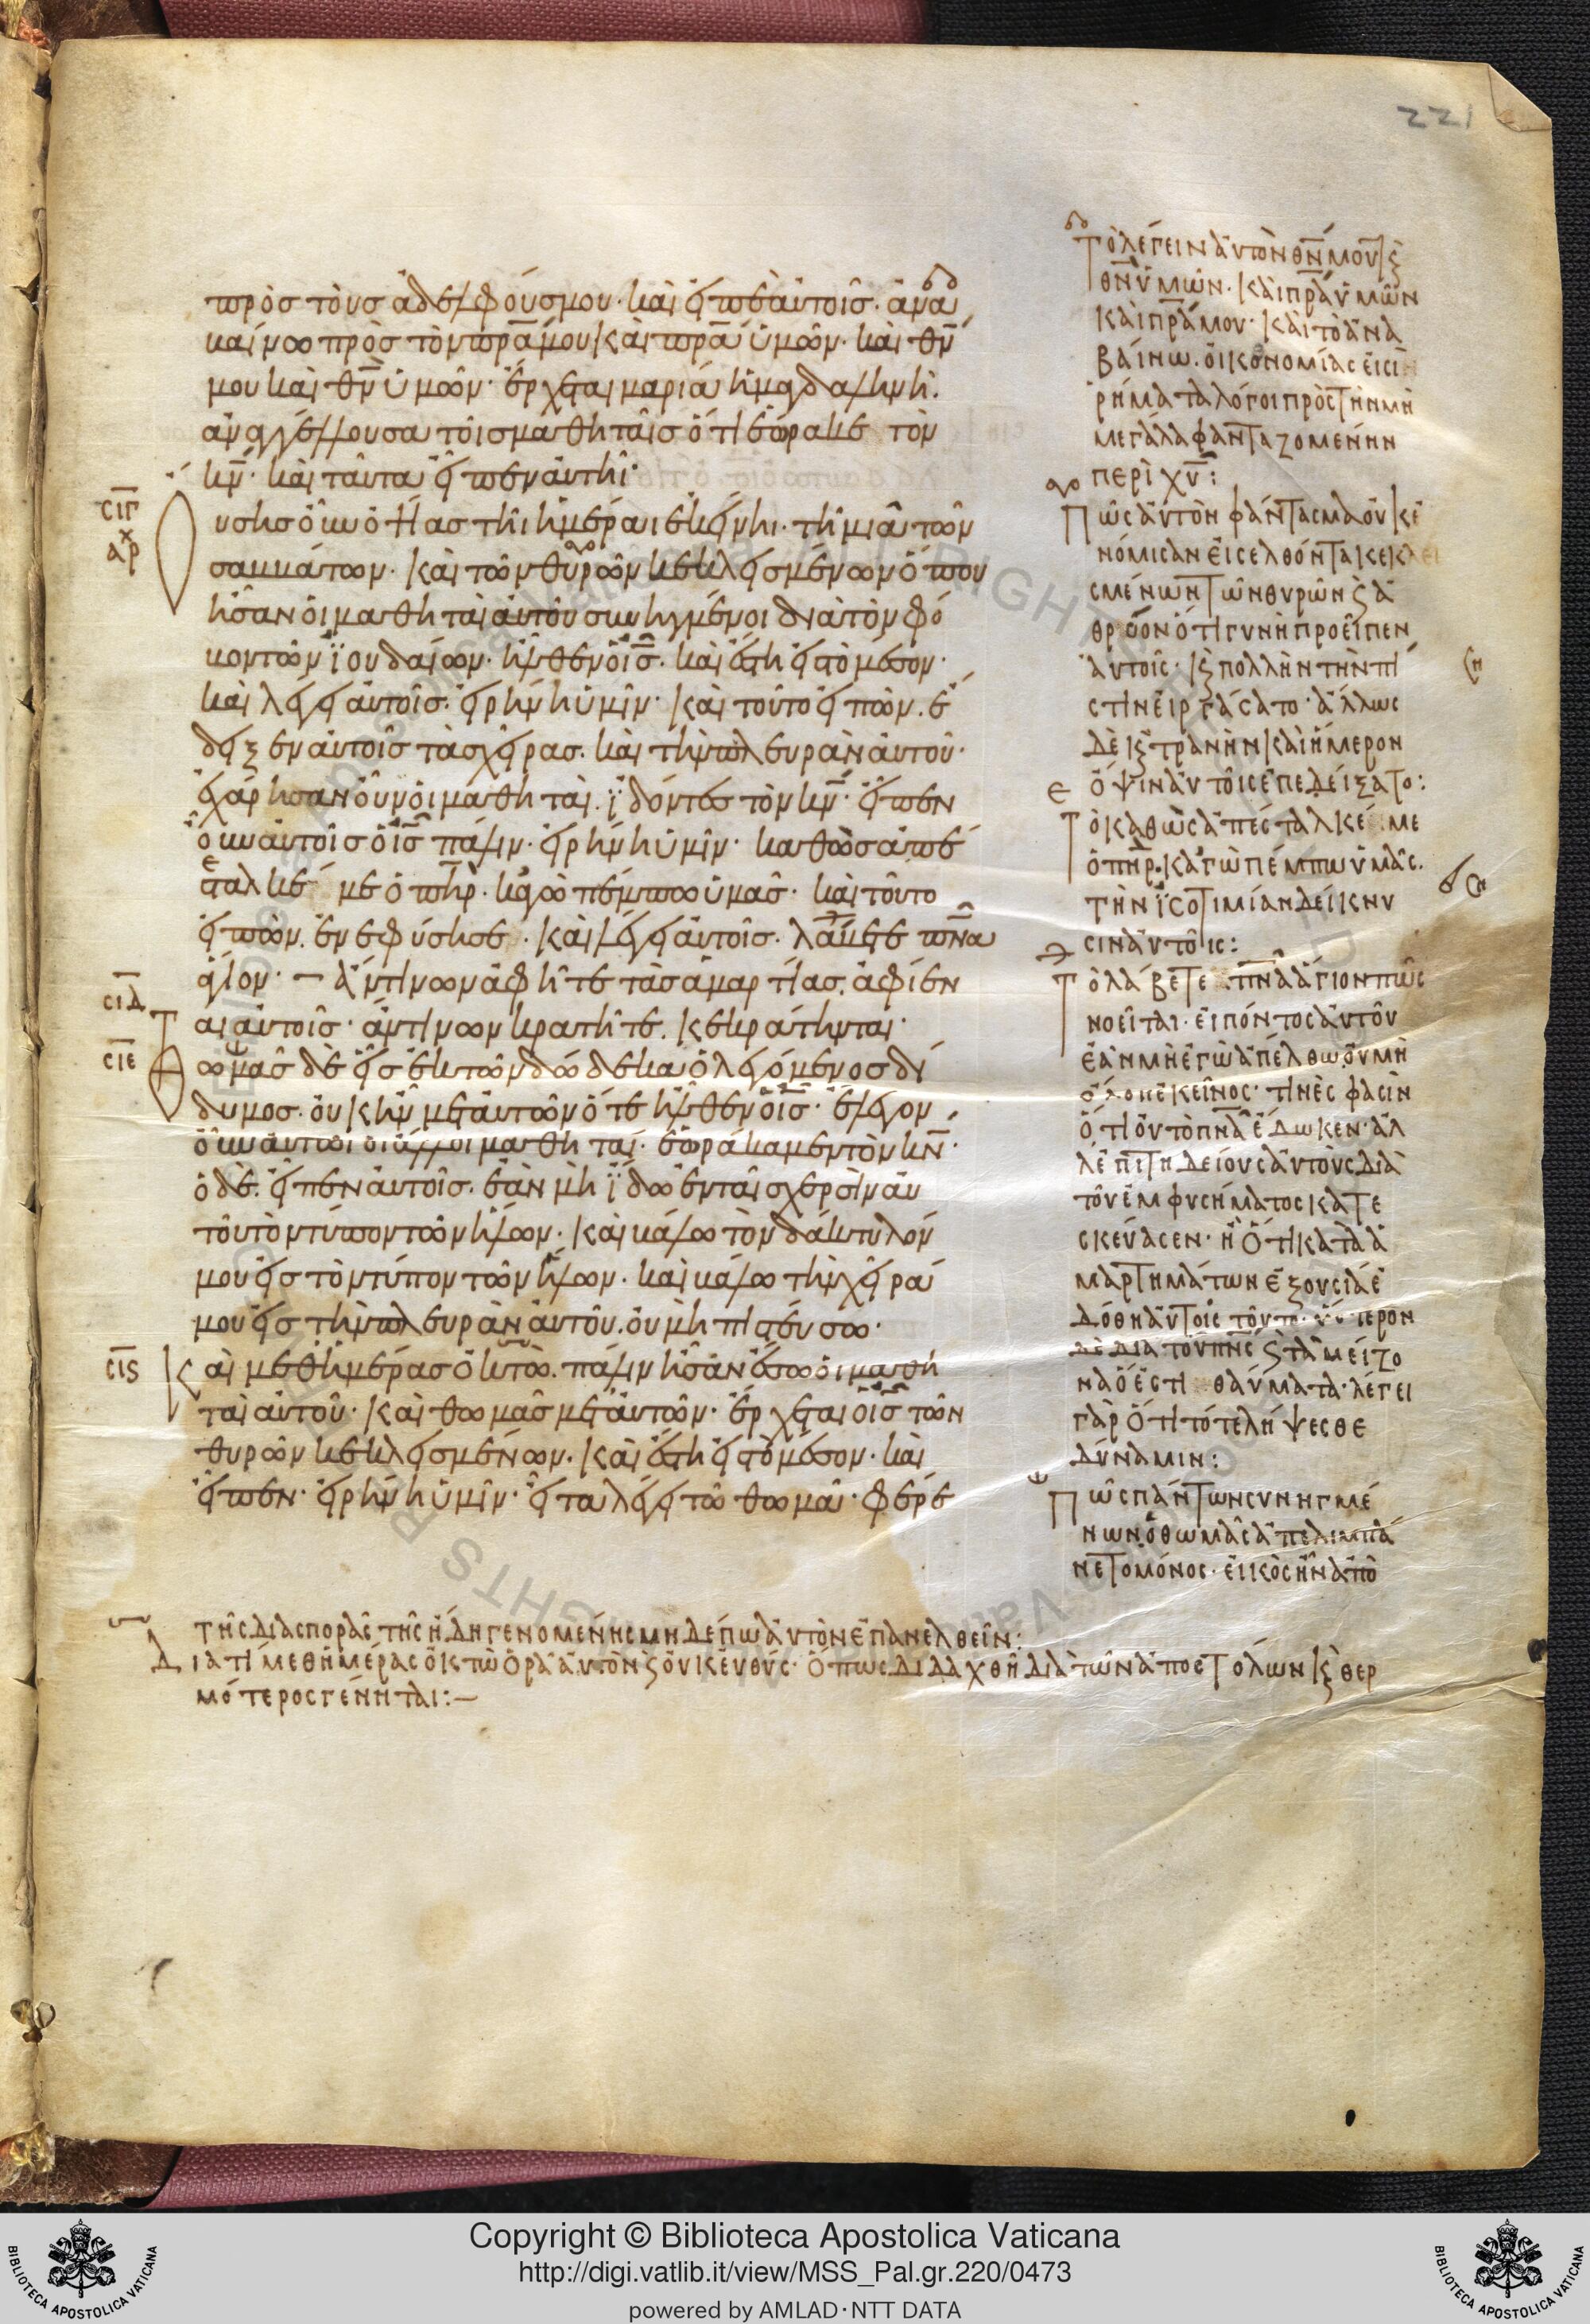 221
πρὸς τοὺς ἀδελφούς μου· καὶ εἰπὲ αὐτοῖς· ἀνα
βαίνω πρὸς τὸν πρ̅α μου καὶ πρ̅α ὑμῶν· καὶ θν̅
μου καὶ θν̅ ὑμῶν· ἔρχεται μαρία ἡ μαγδαληνὴ.
ἀναγγέλλουσα τοῖς μαθηταῖς ὅτι ἑώρακε τὸν
κν̅· καὶ ταῦτα εἶπεν αὐτῆι·
σιγ
αχρ
Οὔσης οὖν ὀψίας τῆι ἡμέραι ἐκείνηι· τῆ μιᾶ τῶν
σαββάτων· καὶ τῶν θυρῶν κεκλεισμένων ὅπου
ἦσαν οἱ μαθηταὶ αὐτοῦ συνηγμένοι διὰ τὸν φό
βον τῶν ϊουδαίων· ἦλθεν ὁ ις̅· καὶ ἔστη εἰς τὸ μέσον·
καὶ λέγει αὐτοῖς· εἰρήνη ὑμῖν· καὶ τοῦτο εἰπὼν· ἔ
δειξεν αὐτοῖς τὰς χεῖρας· καὶ τὴν πλευρὰν αὐτοῦ·
ἐχάρησαν οὖν οἱ μαθηταὶ. ϊδόντες τὸν κν̅· εἶπεν
οὖν αὐτοῖς ὁ ις̅ πάλιν· εἰρήνη ὑμῖν· καθὼς ἀπέ
σταλκέ με ὁ πηρ̅· καγὼ πέμπω ὑμᾶς· καὶ τοῦτο
εἰπὼν· ἐνεφύσησε· καὶ λέγει αὐτοῖς· λάβετε πν̅α
ἅγιον· ἄν τινων ἀφῆτε τὰς ἁμαρτίας· ἀφίεν
σιδ
ται αὐτοῖς· ἄν τινων κρατῆτε. κεκράτηνται·
σιε
Θωμᾶς δὲ εἷς ἐκ τῶν δώδεκα ὁ λεγόμενος δί
δυμος· οὐκ ἦν μετ αὐτῶν ὅτε ἦλθεν ὁ ις̅· ἔλεγον
οὖν αὐτῶ οἱ ἄλλοι μαθηταί· ἑωράκαμεν τὸν κν̅·
ὁ δὲ. εἶπεν αὐτοῖς· ἐὰν μὴ ϊδω ἐν ταῖς χερσὶν αὐ
τοῦ τὸν τύπον τῶν ἥλων· καὶ βάλω τὸν δάκτυλόν
μου εἰς τὸν τύπον τῶν ἥλων· καὶ βάλω τὴν χεῖρά
μου εἰς τὴν πλευρὰν αὐτοῦ. οὐ μὴ πιστεύσω·
σις
Καὶ μεθ ἡμέρας ὀκτὼ. πάλιν ἦσαν ἔσω οἱ μαθη
ταὶ αὐτοῦ· καὶ θωμᾶς μετ αὐτῶν· ἔρχεται ὁ ις̅ τῶν
θυρῶν κεκλεισμένων· καὶ ἔστη εἰς τὸ μέσον· καὶ
εἶπεν· εἰρήνη ὑμῖν· εἶτα λέγει τῶ θωμᾶ· φέρε
Τὸ λέγειν αὐτὸν θν̅ μου κ
θν̅ ὑμῶν· καὶ πρ̅α ὑμῶν
καὶ πρ̅α μου· καὶ τὸ ἀνα
βαίνω. οἰκονομίας εἰσὶ
ῥήματα λόγοι πρὸς τὴν μὴ
μεγάλα φανταζομένην
περὶ χυ̅:
Πῶς αὐτὸν φάντασμα οὐκ ἐ
νόμισαν εἰσελθόντα κεκλει
σμένων τῶν θυρῶν
ὅτι γυνὴ προεῖπεν
αὐτοῖς· κ πολλὴν τὴν πί
στιν εἰργάσατο· ἄλλως
δὲ κ τρανὴν καὶ ἥμερον
ὄψιν αὐτοῖς ἐπεδείξατο:
Τὸ καθὼς ἀπέσταλκέ με
ὁ πηρ̅. καγὼ πέμπω ὑμᾶς.
τὴν ϊσοτιμίαν δείκνυ
σιν αὐτοῖς:
Τὸ λάβετε πν̅α ἅγιον πῶς
νοεῖται· εἰπόντος αὐτοῦ
ἐὰν μὴ ἐγὼ ἀπέλθω. οὐ μὴ
ἐκεῖνος· τινές φασιν
ὅτι οὐ τὸ πν̅α ἔδωκεν· ἀλ
λ ἐπιτηδείους αὐτοὺς διὰ
τοῦ ἐμφυσήματος κατε
σκεύασεν· ἢ ὅτι κατὰ ἁ
μαρτημάτων ἐξουσία ἐ
δόθη αὐτοῖς τοῦτο·
δὲ διὰ τοῦ πνς̅ τὰ μείζο
να ὅ ἐστι θαύματα· λέγει
γὰρ ὅτι τότε λήψεσθε
δύναμιν:
Πῶς πάντων συνηγμέ
νων. ὁ θωμᾶς ἀπελιμπά
νετο μόνος· εἰκὸς ἦν ἀπὸ
τῆς διασπορᾶς τῆς ἤδη γενομένης μηδέπω αὐτὸν ἐπανελθεῖν:
Διατί μεθ ἡμέρας ὀκτὼ ὁρᾶ αὐτὸν κ οὐκ εὐθύς· ὅπως διδαχθῆ διὰ τῶν ἀποστόλων κ θερ
μότερος γένηται:—
Copyright © Biblioteca Apostolica Vaticana
http://digi.vatlib.it/view/MSS_Pal.gr.220/0473
powered by AMLAD·NTT DATA
BIBLIOTECA APOSTOLICA VATICANA
BIBLIOTECA APOSTOLICA VATICANA